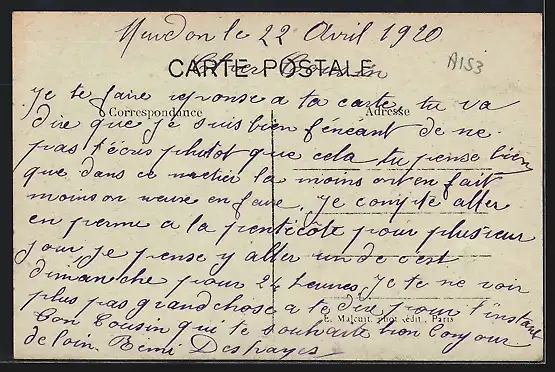 Meudon le 22 Avril 1920
Cher Cousin
CARTE POSTALE
A153
Correspondance
Adresse
Je te faire reponse a ta carte tu va
dire que je suis bien fénéant de ne
pas t'écris plutot que cela tu pense bien
que dans ce metier la moins on en fait
moins on veus en faire. Je compte aller
en perme a la pentecote pour plusieur
jour, je pense y aller un de c'est
dimanche pour 24 heures, Je te ne voir
plus pas grand chose a te dire pour l'instant
Ton Cousin qui te souhaite bon Conjour
de loin. Rémi Desfrayes
E. Malcuit, phot.-édit., Paris